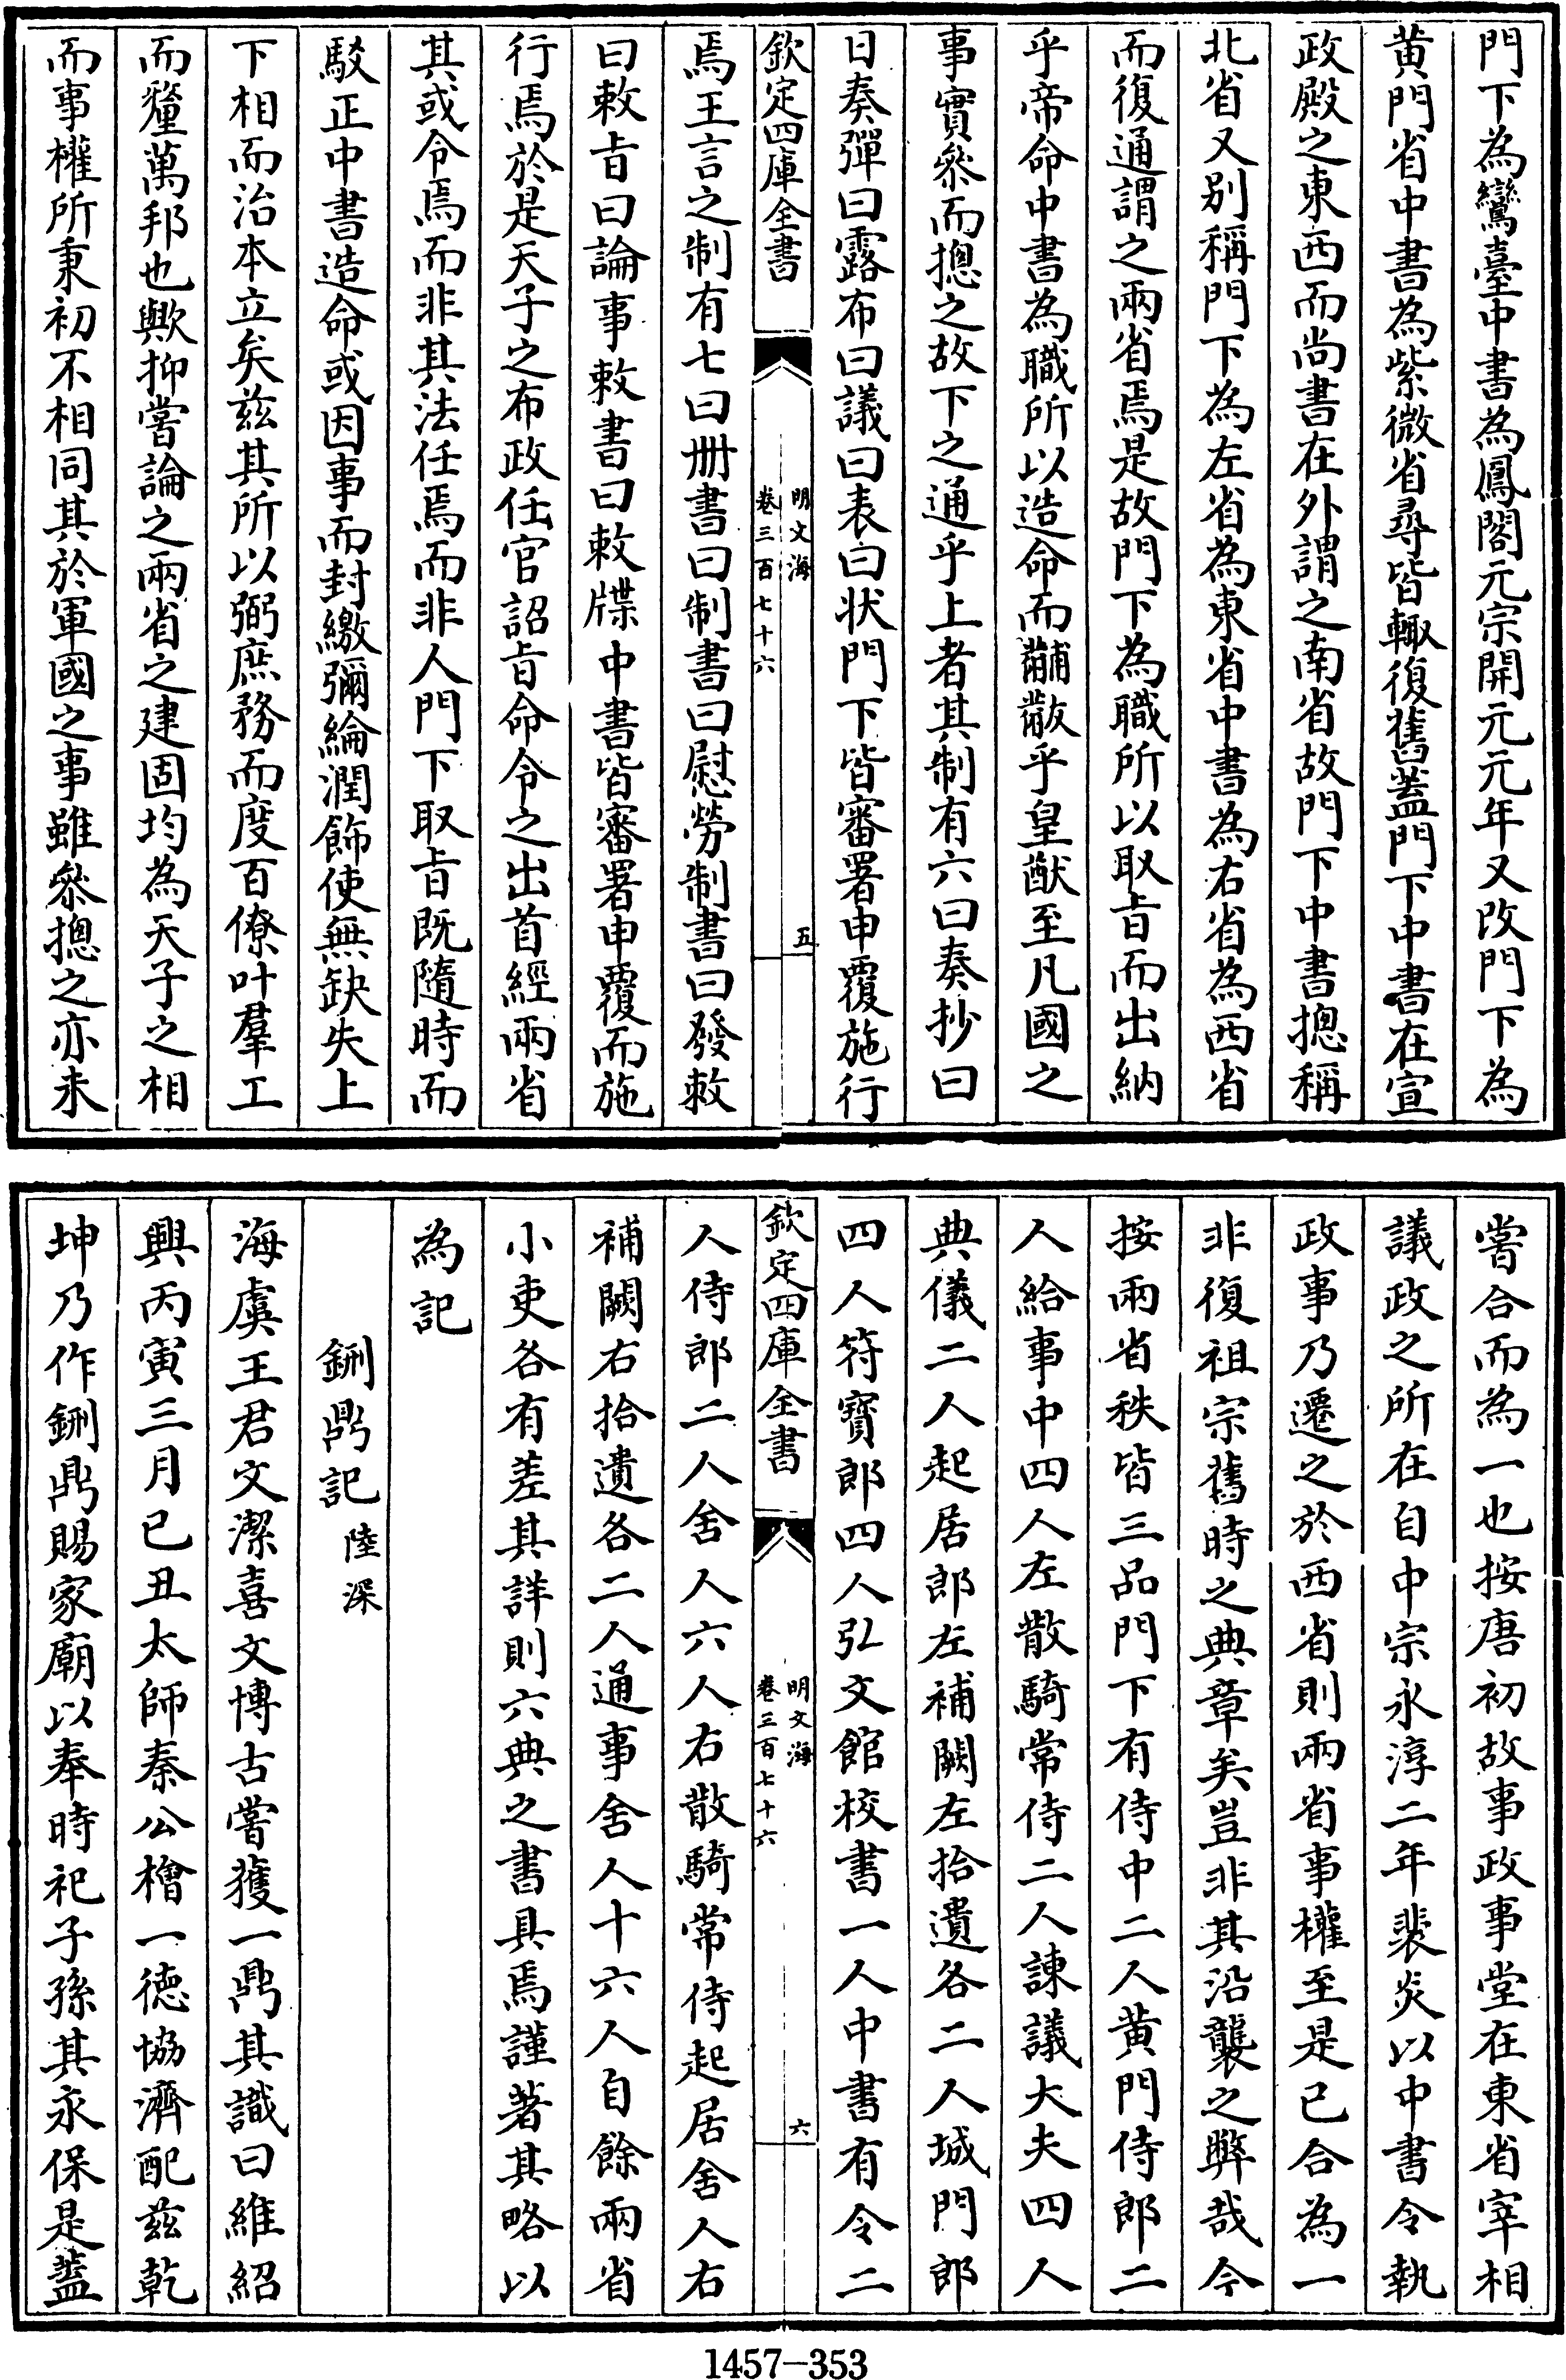 門下為鸞臺中書為鳳閣元宗開元元年又改門下為
黄門省中書為紫微省尋皆輙復舊蓋門下中書在宣
政殿之東西而尚書在外謂之南省故門下中書揔稱
北省又别稱門下為左省為東省中書為右省為西省
而復通謂之兩省焉是故門下為職所以取㫖而出納
乎帝命中書為職所以造命而黼黻乎皇猷至凡國之
事實叅而揔之故下之通乎上者其制有六曰奏抄曰
曰奏彈曰露布曰議曰表曰状門下皆審署申覆施行
欽定四庫全書
明文海
卷三百七十六
五
焉王言之制有七曰冊書曰制書曰慰勞制書曰發敕
曰敕㫖曰論事敕書曰敕牒中書皆審署申覆而施
行焉於是天子之布政任官詔㫖命令之出首經兩省
其或令焉而非其法任焉而非人門下取㫖既隨時而
駁正中書造命或因事而封繳彌綸潤飾使無缺失上
下相而治本立矣兹其所以弼庶務而度百僚叶羣工
而釐萬邦也歟抑嘗論之兩省之建固均為天子之相
而事權所秉初不相同其於軍國之事雖叅揔之亦未
嘗合而為一也按唐初故事政事堂在東省宰相
議政之所在自中宗永淳二年裴炎以中書令執
政事乃遷之於西省則兩省事權至是已合為一
非復祖宗舊時之典章矣豈非其沿襲之弊哉今
按兩省秩皆三品門下有侍中二人黄門侍郎二
人給事中四人左散騎常侍二人諫議大夫四人
典儀二人起居郎左補闕左拾遺各二人城門郎
四人符寶郎四人弘文館校書一人中書有令二
欽定四庫全書
明文海
卷三百七十六
六
人侍郎二人舍人六人右散騎常侍起居舍人右
補闕右拾遺各二人通事舍人十六人自餘兩省
小吏各有差其詳則六典之書具焉謹著其略以
為記
鉶鼎記 陸深
海虞王君文潔喜文博古嘗獲一鼎其識曰維紹
興丙寅三月已丑太師秦公檜一德協濟配兹乾
坤乃作鉶鼎賜家廟以奉時祀子孫其永保是葢
1457-353